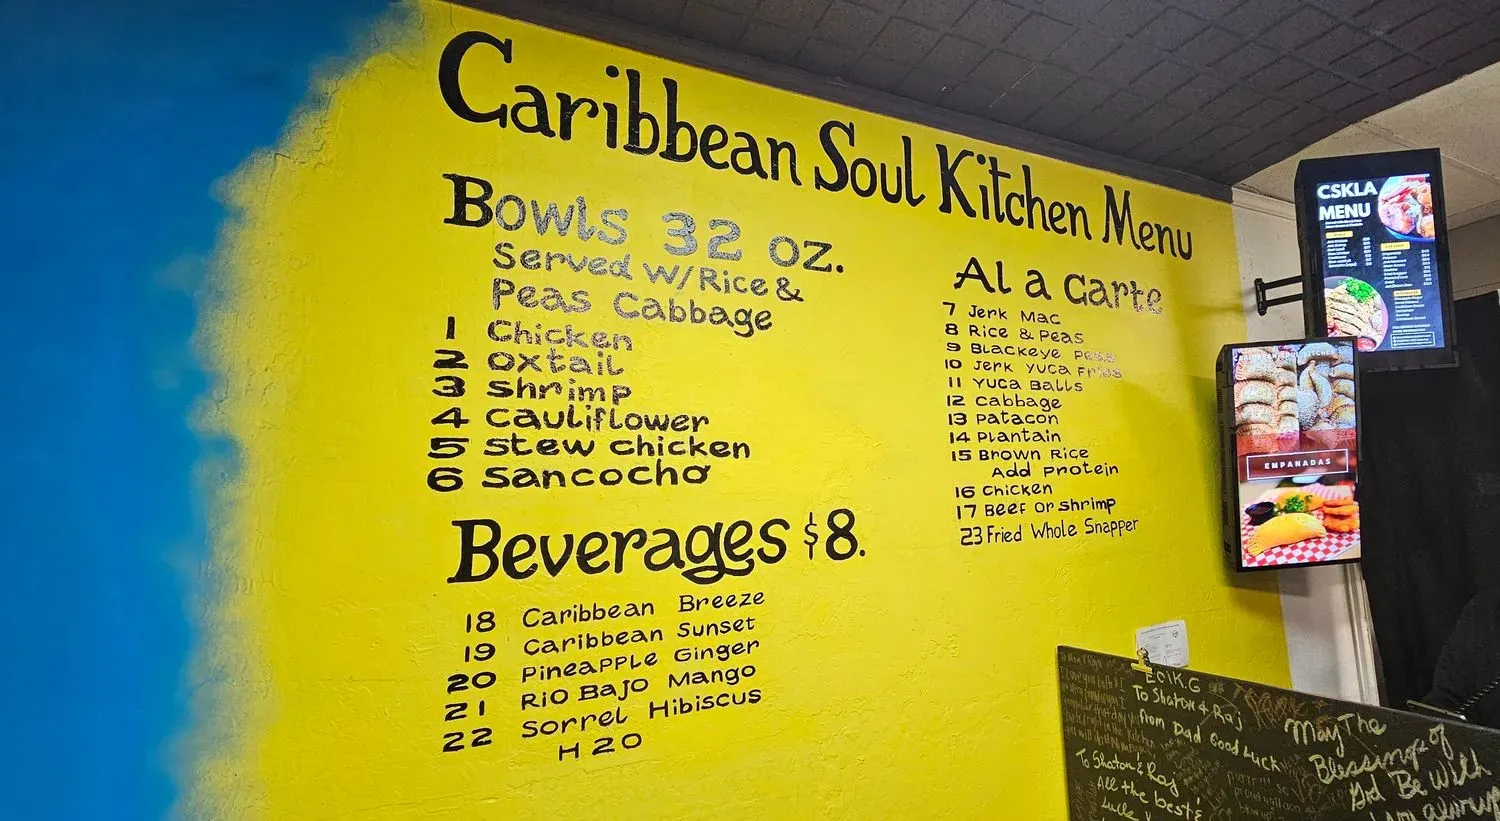 Caribbean Soul Kitchen Menu
Bowls 32 oz.
Served w/Rice &
Peas Cabbage
1 Chicken
2 oxtail
3 shrimp
4 cauliflower
5 stew chicken
6 sancocho
Beverages $8.
18 Caribbean Breeze
19 Caribbean Sunset
20 Pineapple Ginger
21 Rio Bajo Mango
22 Sorrel Hibiscus
H20
Al a carte
7 Jerk Mac
8 Rice & Peas
9 Blackeye Peas
10 Jerk Yuca Fries
11 Yuca Balls
12 Cabbage
13 Patacon
14 Plantain
15 Brown Rice
Add Protein
16 Chicken
17 Beef or shrimp
23 Fried Whole Snapper
CSKLA
MENU
EMPANADAS
To Sharon & Raj
from Dad Good Luck
To Sharon & Raj
All the best &
May The
Blessings of
God Be with